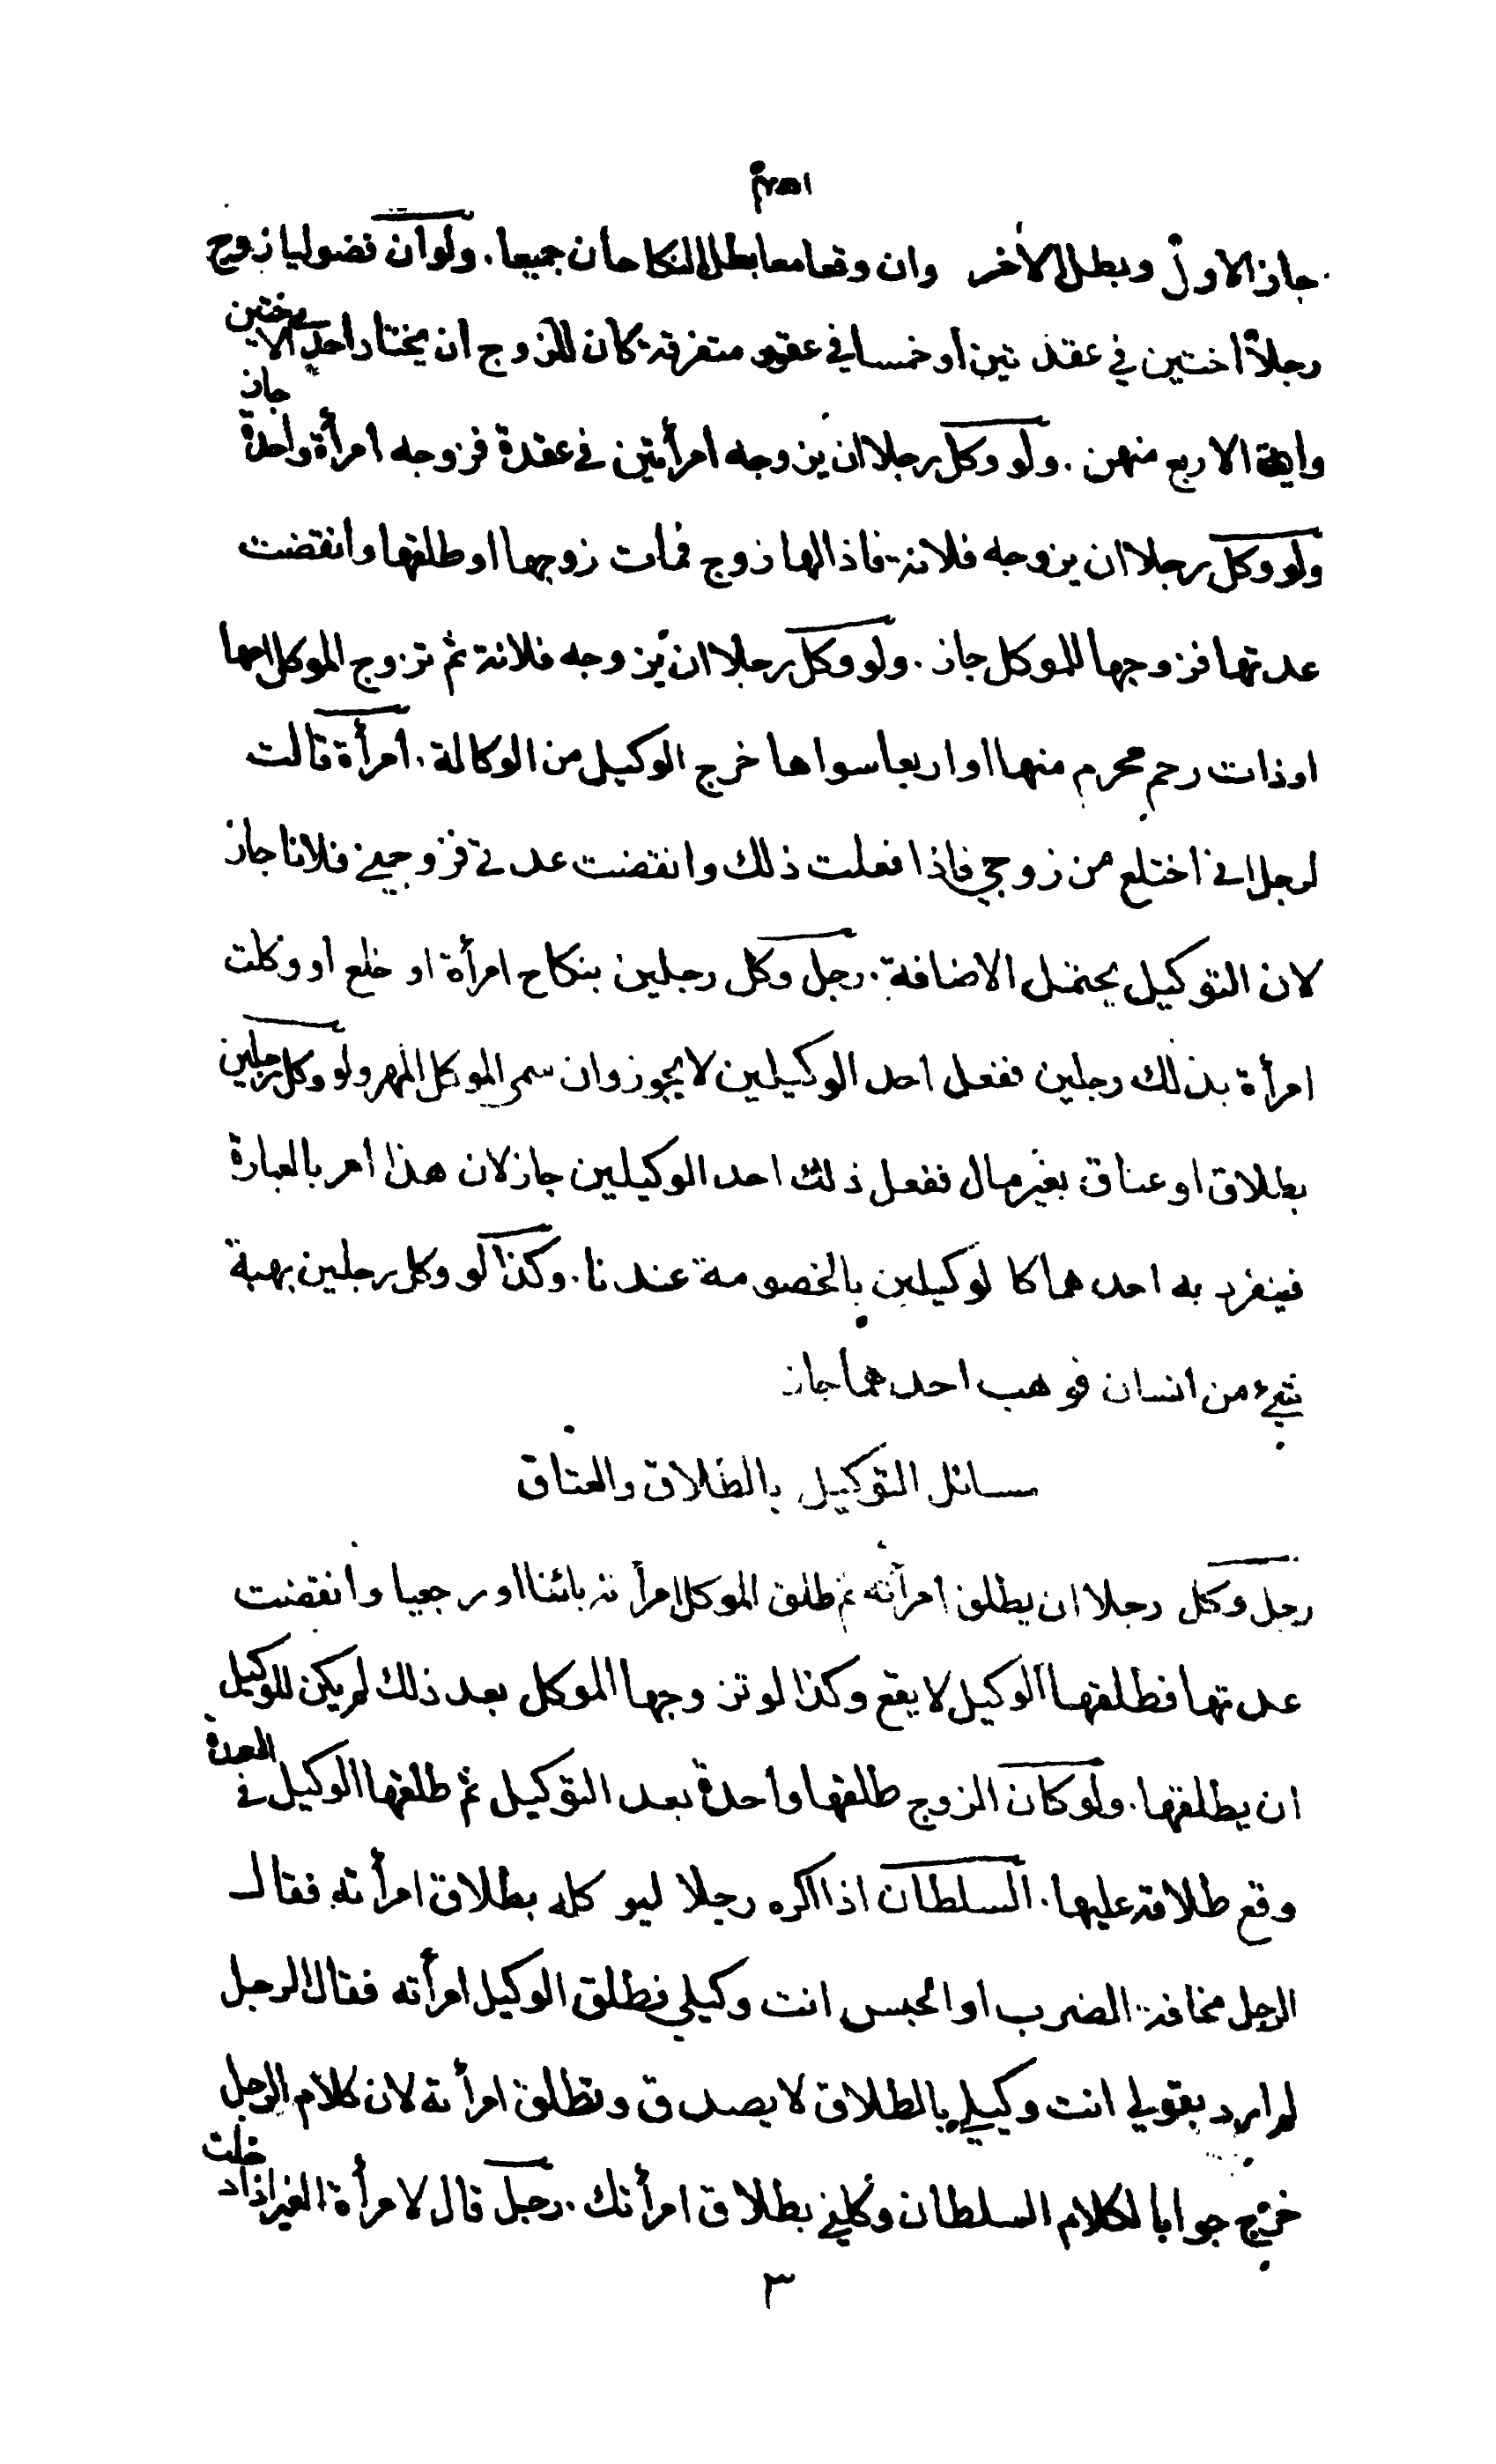 جاز الاول وبطل الآخر وان وقعا معا بطل النكاحان جميعا. ولو ان فضوليا زوج
رجلا اختين في عقدتين او خمسا في عقود متفرقة كان للزوج ان يختار احدى الاختين
واية الاربع منهن. ولو وكل رجلا ان يزوجه امرأتين في عقدة فزوجه امرأة واحدة جاز
ولو وكل رجلا ان يزوجه فلانة فاذا لها زوج فمات زوجها او طلقها وانقضت
عدتها فزوجها للموكل جاز. ولو وكل رجلا ان يزوجه فلانة ثم تزوج الموكل امها
او ذات رحم محرم منها او اربعا سواها خرج الوكيل من الوكالة. امرأة قالت
لرجل اني اختلع من زوجي فاذا فعلت ذلك وانقضت عدتي فزوجيني فلانا جاز
لان التوكيل يحتمل الاضافة. رجل وكل رجلين بنكاح امرأة او خلع او وكلت
امرأة بذلك رجلين ففعل احد الوكيلين لا يجوز وان سمى الموكل المهر ولو وكل رجلين
بطلاق او عتاق بغير مال ففعل ذلك احد الوكيلين جاز لان هذا امر بالعبارة
فينفرد به احدهما كالوكيلين بالخصومة عندنا. وكذا لو وكل رجلين بهبة
شيء من انسان فوهب احدهما جاز
مسائل التوكيل بالطلاق والعتاق
رجل وكل رجلا ان يطلق امرأته ثم طلق الموكل امرأته بائنا او رجعيا وانقضت
عدتها فطلقها الوكيل لا يقع وكذا لو تزوجها الموكل بعد ذلك لم يكن للوكيل
ان يطلقها. ولو كان الزوج طلقها واحدة بعد التوكيل ثم طلقها الوكيل في العدة
وقع طلاقه عليها. السلطان اذا اكره رجلا ليوكله بطلاق امرأته فقال
الرجل مخافة الضرب او الحبس انت وكيلي فطلق الوكيل امرأته فقال الرجل
لم ارد بقولي انت وكيلي بالطلاق لا يصدق وتطلق امرأته لان كلام الرجل
خرج جوابا لكلام السلطان وكلني بطلاق امرأتك. رجل قال لامرأة الغير اذا دخلت
٣